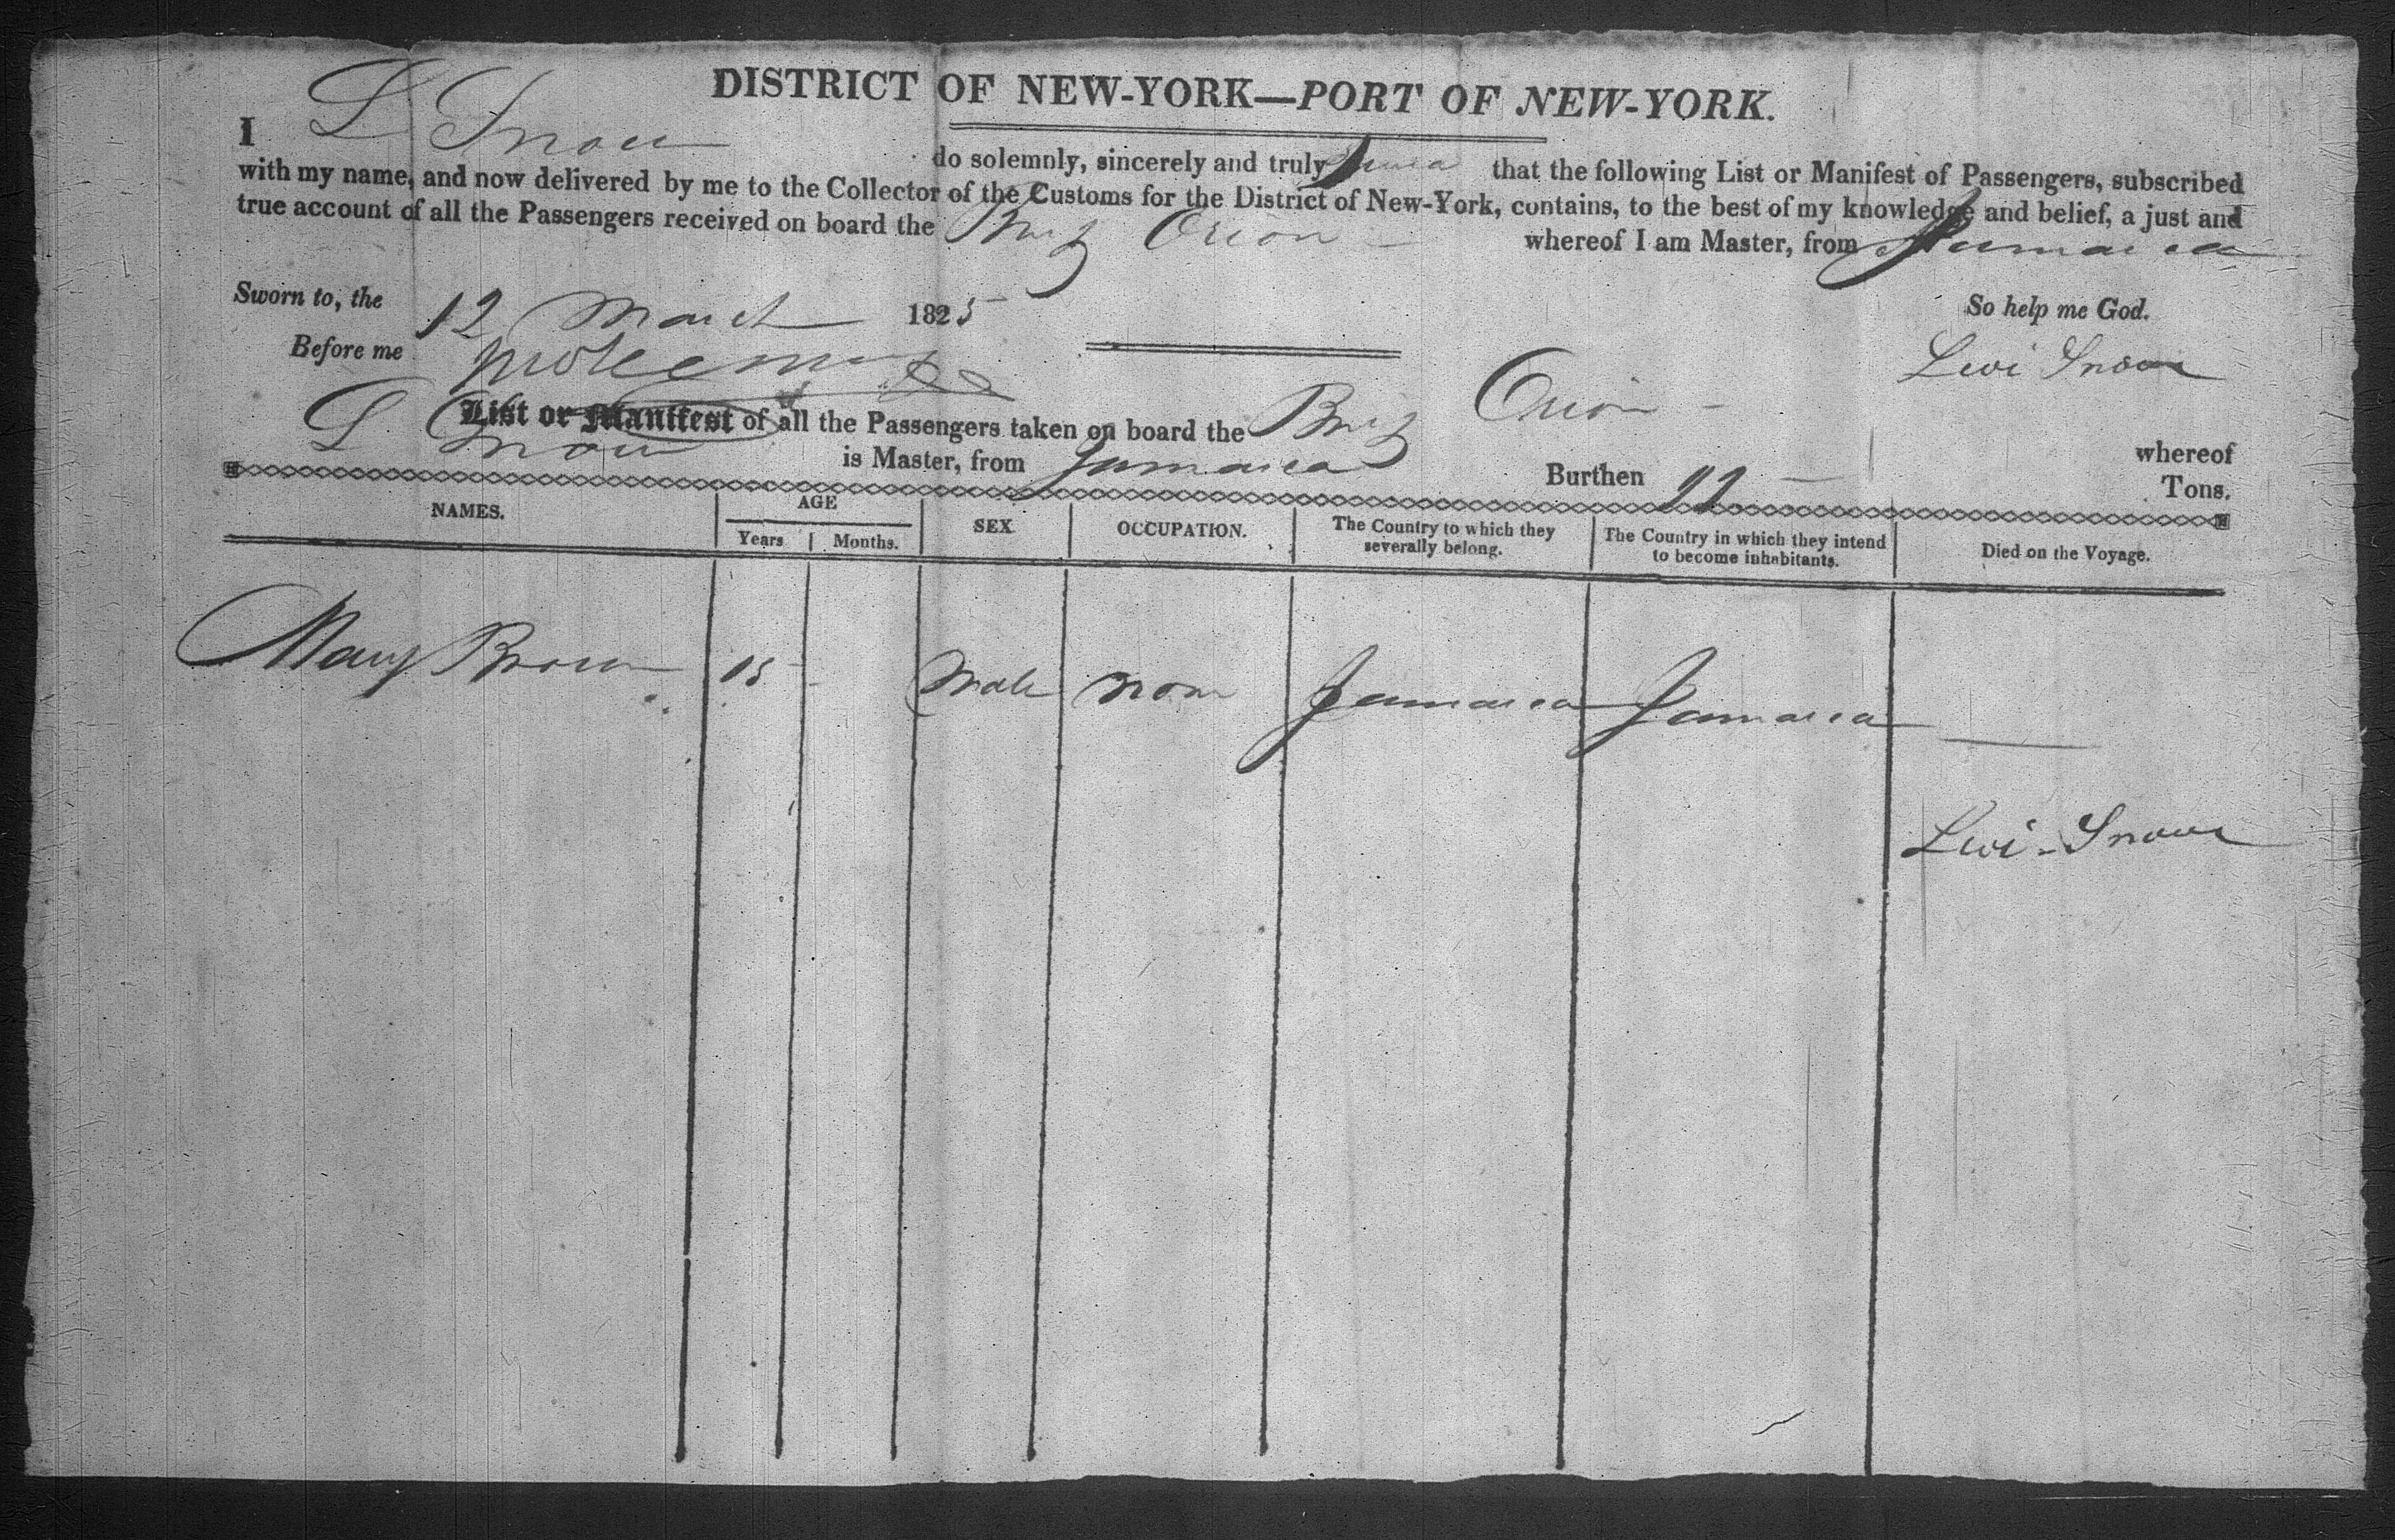 DISTRICT OF NEW-YORK—PORT OF NEW-YORK.
I L Snow do solemnly, sincerely and truly swea that the following List or Manifest of Passengers, subscribed
with my name, and now delivered by me to the Collector of the Customs for the District of New-York, contains, to the best of my knowledge and belief, a just and
true account of all the Passengers received on board the Brig Orion whereof I am Master, from Jamaica
Sworn to, the 12 March 1825 So help me God.
Before me Levi Snow
List or Manifest of all the Passengers taken on board the Brig Orion whereof
L Snow is Master, from Jamaica Burthen Tons.
NAMES. AGE SEX OCCUPATION. The Country to which they severally belong. The Country in which they intend to become inhabitants. Died on the Voyage.
Years Months.
Mary Brown 15 Male Jamaica Jamaica
Levi Snow